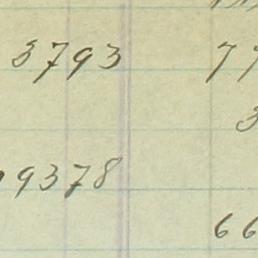 3793 77
3
9378
66